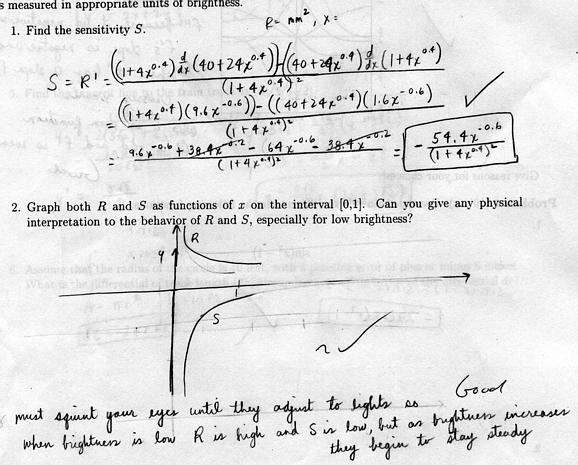 s measured in appropriate units of brightness.
R- mm², x=
1. Find the sensitivity S.
S = R' = ((1+4x^0.4) d/dx (40+24x^0.4)) - ((40+24x^0.4) d/dx (1+4x^0.4) / (1+4x^0.4)²
= ((1+4x^0.4)(9.6x^-0.6)) - ((40+24x^0.4)(1.6x^-0.6) / (1+4x^0.4)²
= 9.6x^-0.6 + 38.4x^-0.2 - 64x^-0.6 - 38.4x^-0.2 / (1+4x^0.4)² = - 54.4x^-0.6 / (1+4x^0.4)²
2. Graph both R and S as functions of x on the interval [0,1]. Can you give any physical
interpretation to the behavior of R and S, especially for low brightness?
R
4
S
Good
must squint your eyes until they adjust to lights so
when brightness is low R is high and S is low, but as brightness increases
they begin to stay steady